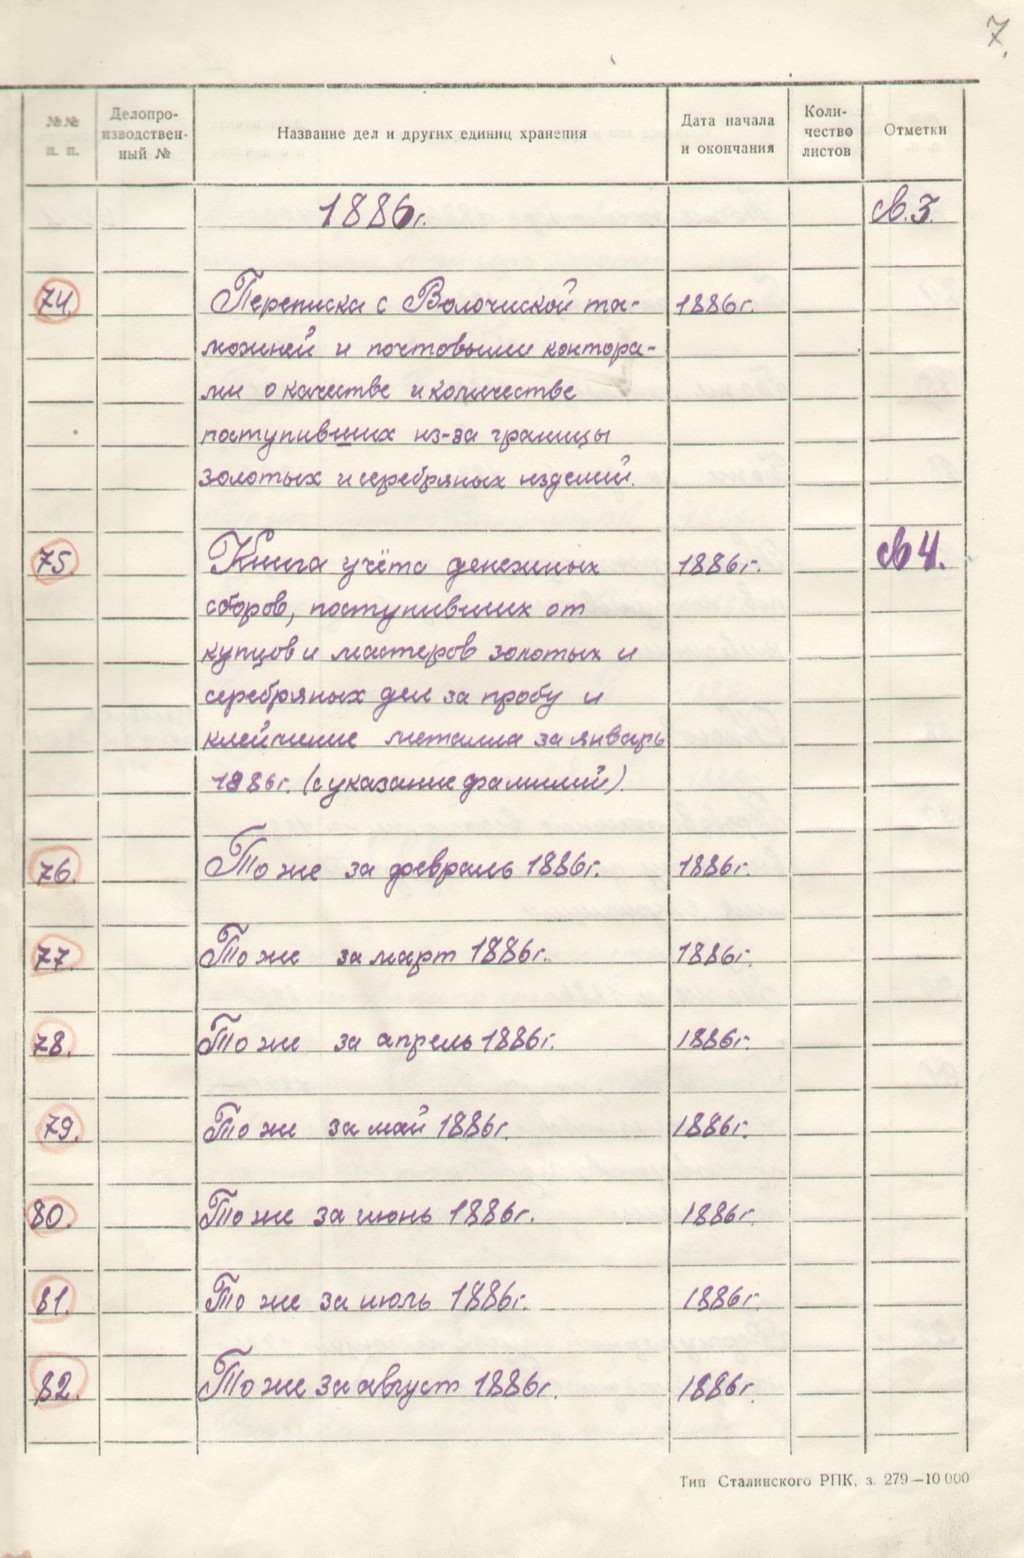 7.
№№ п. п.
Делопро-
изводствен-
ный №
Название дел и других единиц хранения
Дата начала
и окончания
Коли-
чество
листов
Отметки
1886г. св.3.
74. Переписка с Волочиской та- 1886г.
можней и почтовыми контора-
ми о качестве и количестве
поступивших из-за границы
золотых и серебряных изделий.
75. Книга учёта денежных 1886г. св 4.
сборов, поступивших от
купцов и мастеров золотых и
серебряных дел за пробу и
клеймение металла за январь
1886г. (с указание фамилий).
76. То же за февраль 1886г. 1886г.
77. То же за март 1886г. 1886г.
78. То же за апрель 1886г. 1886г.
79. То же за май 1886г. 1886г.
80. То же за июнь 1886г. 1886г
81. То же за июль 1886г. 1886г.
82. То же за август 1886г. 1886г.
Тип Сталинского РПК, з. 279—10 000